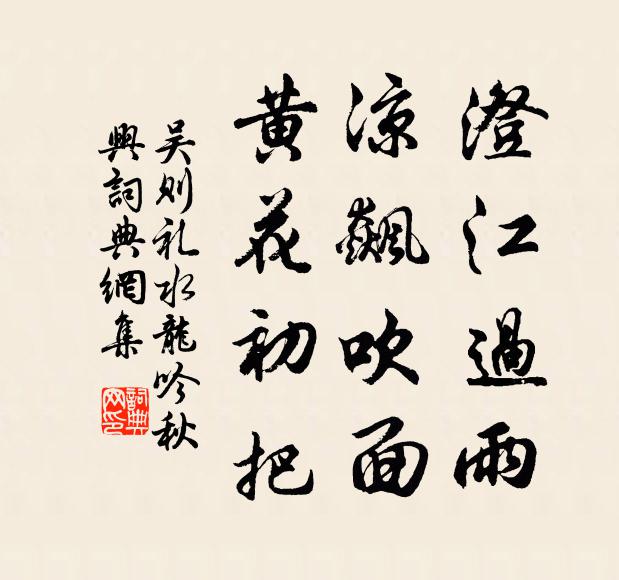 澄江過雨
涼飆吹面
黄花初把
吴则礼水龍吟秋
興詞典網集
詞典网印